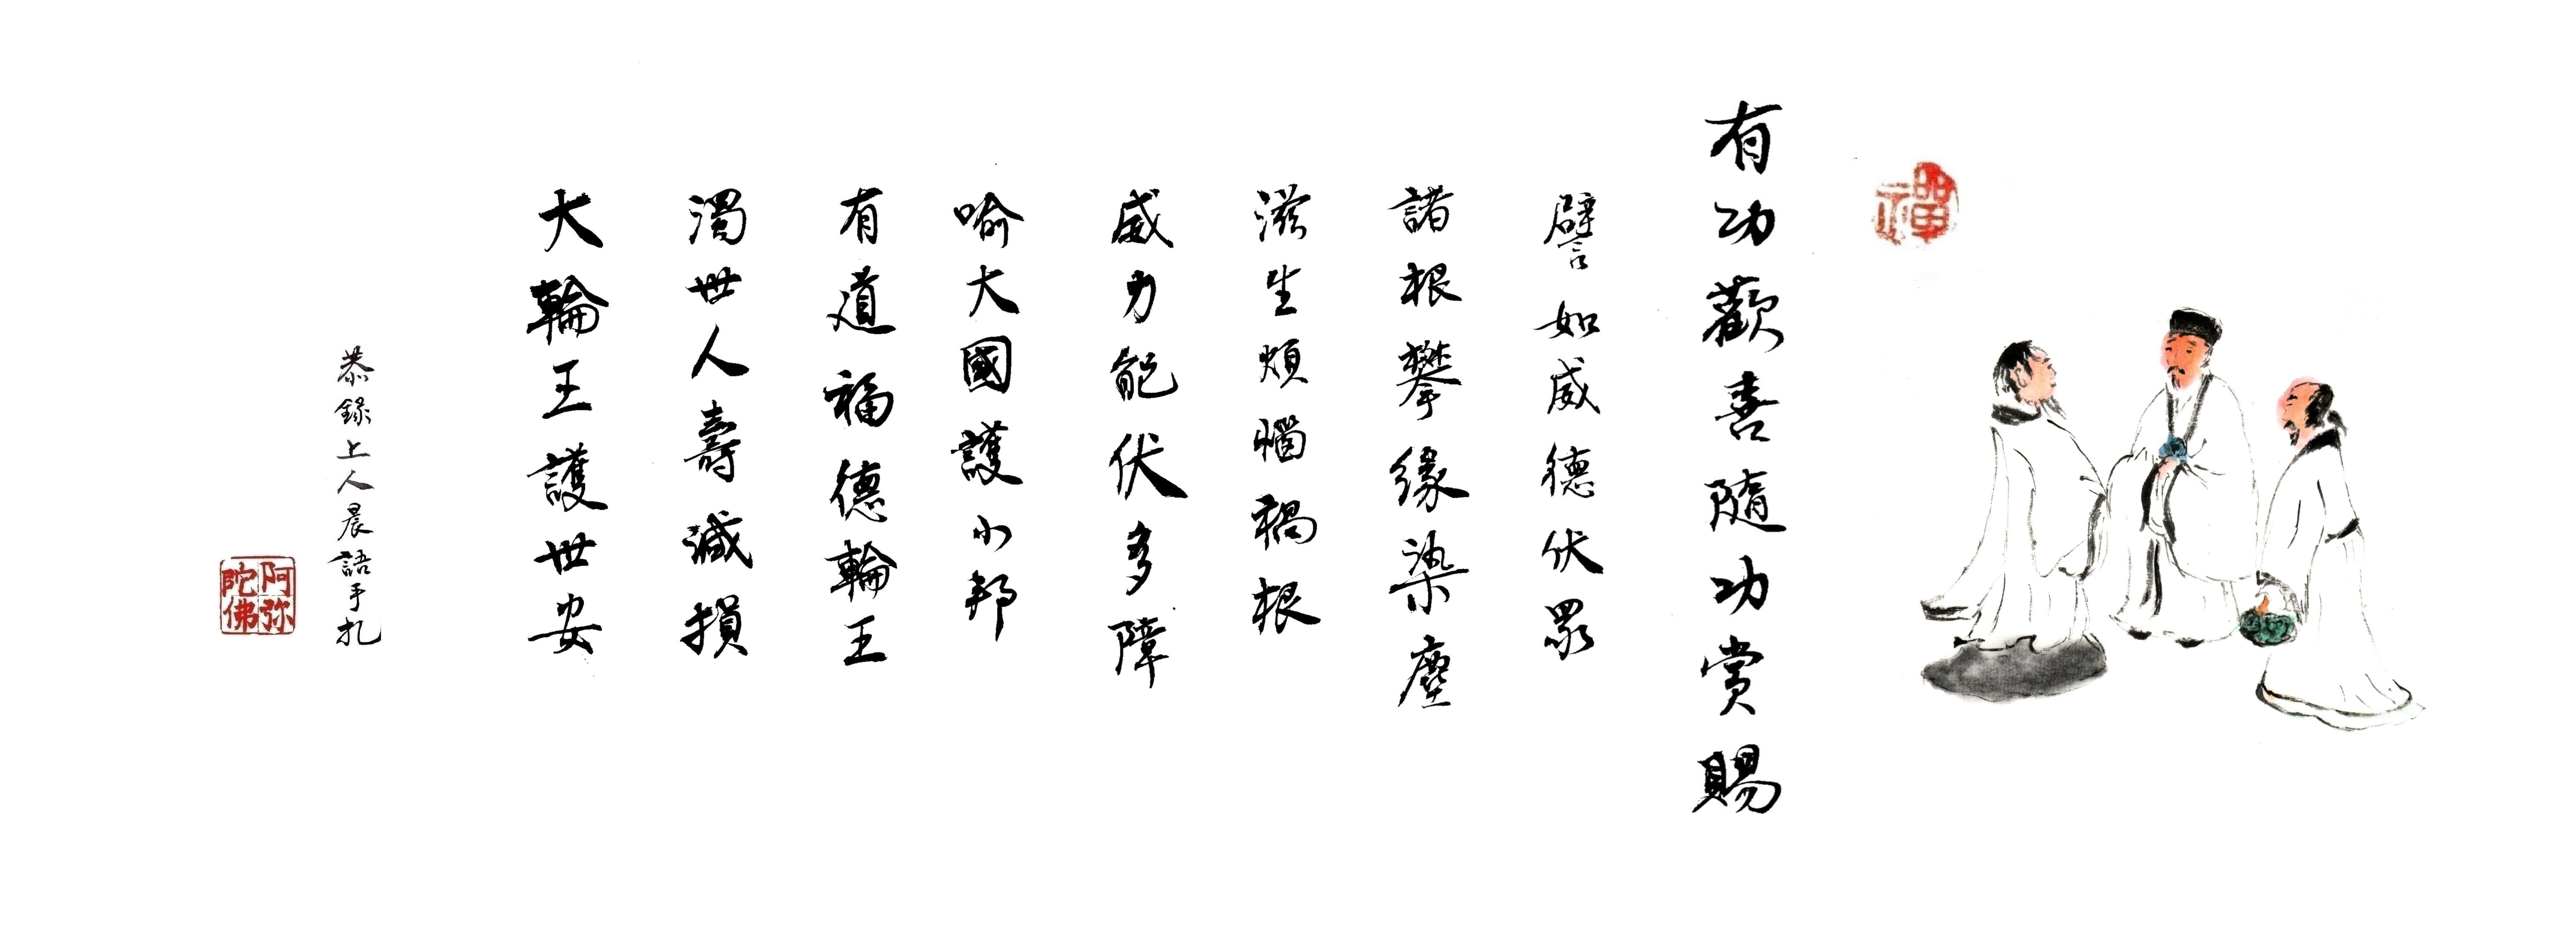 禪
有功歡喜隨功賞賜
譬如威德伏眾
諸根攀緣染塵
滋生煩惱禍根
威力能伏多障
喻大國護小邦
有道福德輪王
濁世人壽減損
大輪王護世安
恭錄上人晨語手札
阿弥陀佛